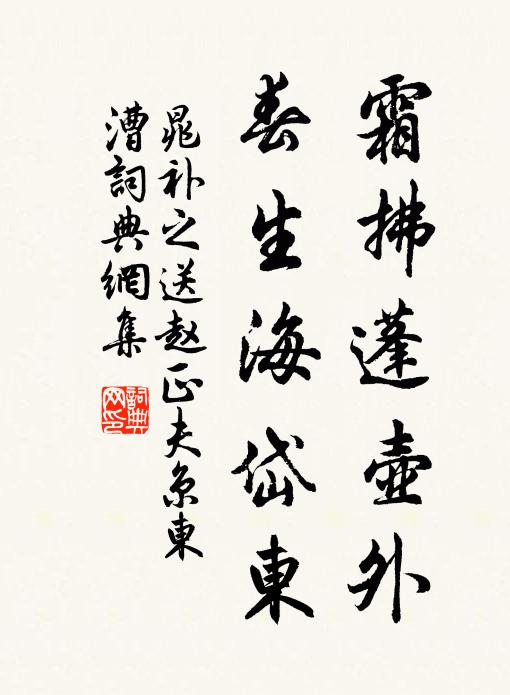 霜拂蓬壺外
春生海岱東
晁补之送赵正夫京東
漕詞典網集
詞典网印